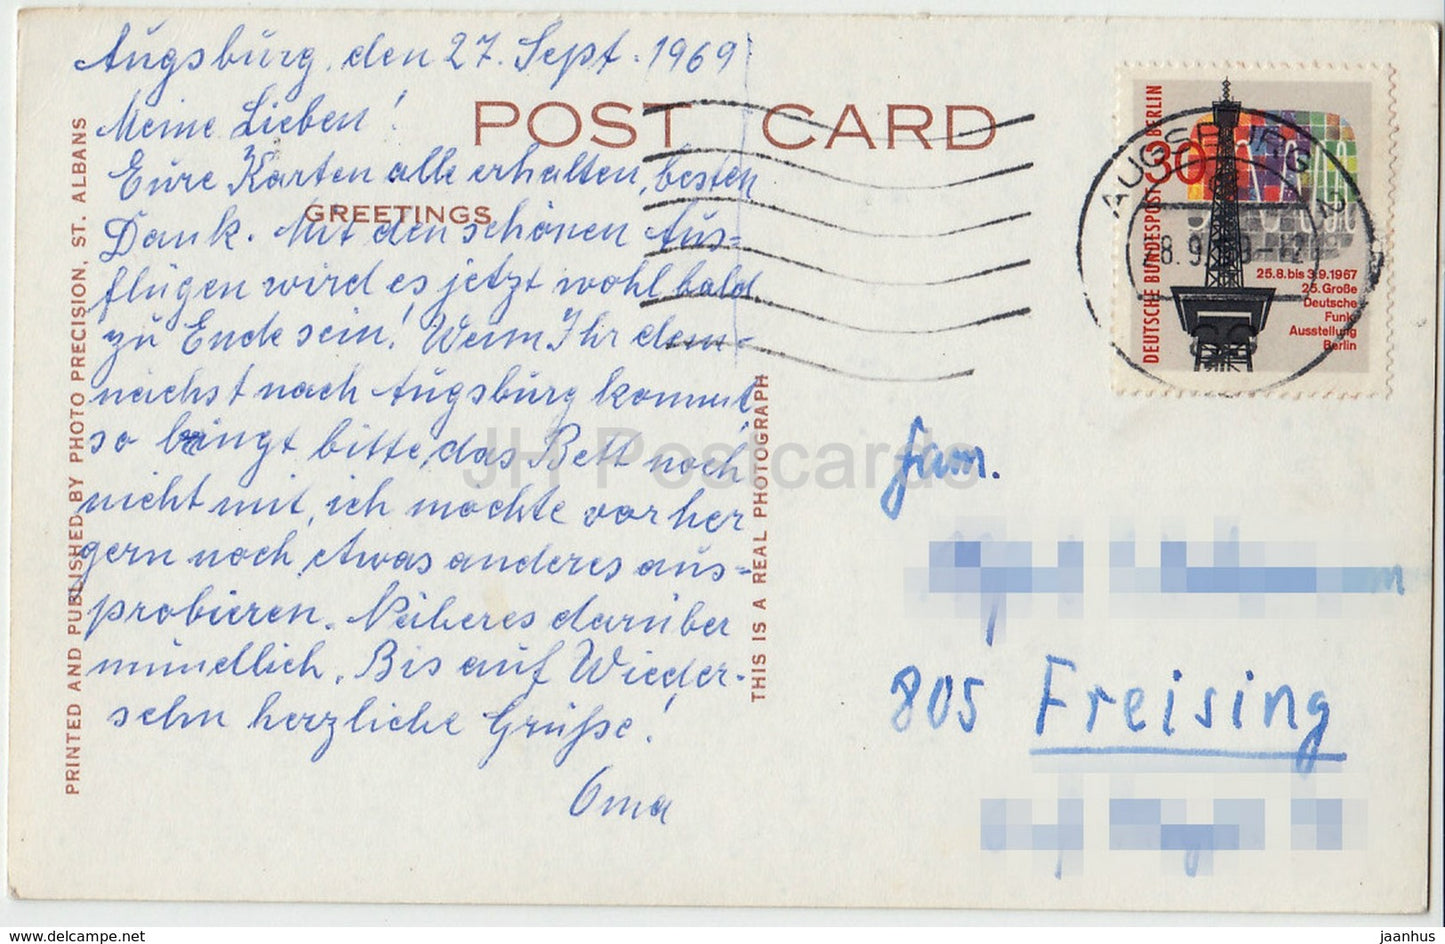 Augsburg, den 27. Sept. 1969
Meine Lieben!
Eure Karten alle erhalten, besten
Dank. Mit den schönen Aus=
flügen wird es jetzt wohl bald
zu Ende sein! Wenn Ihr dem=
nächst nach Augsburg kommt,
so bringt bitte, das Bett noch
nicht mit, ich möchte vorher
gern noch etwas anderes aus=
probieren. Näheres darüber
mündlich. Bis auf Wieder-
sehn herzliche Grüße!
Oma
POST CARD
GREETINGS
PRINTED AND PUBLISHED BY PHOTO PRECISION, ST. ALBANS
THIS IS A REAL PHOTOGRAPH
DEUTSCHE BUNDESPOST BERLIN
30
25.8. bis 3.9.1967
25. Große
Deutsche
Funk
Ausstellung
Berlin
AUGSBURG
Fam.
805 Freising
JH Postcards
www.delcampe.net
jaanhus